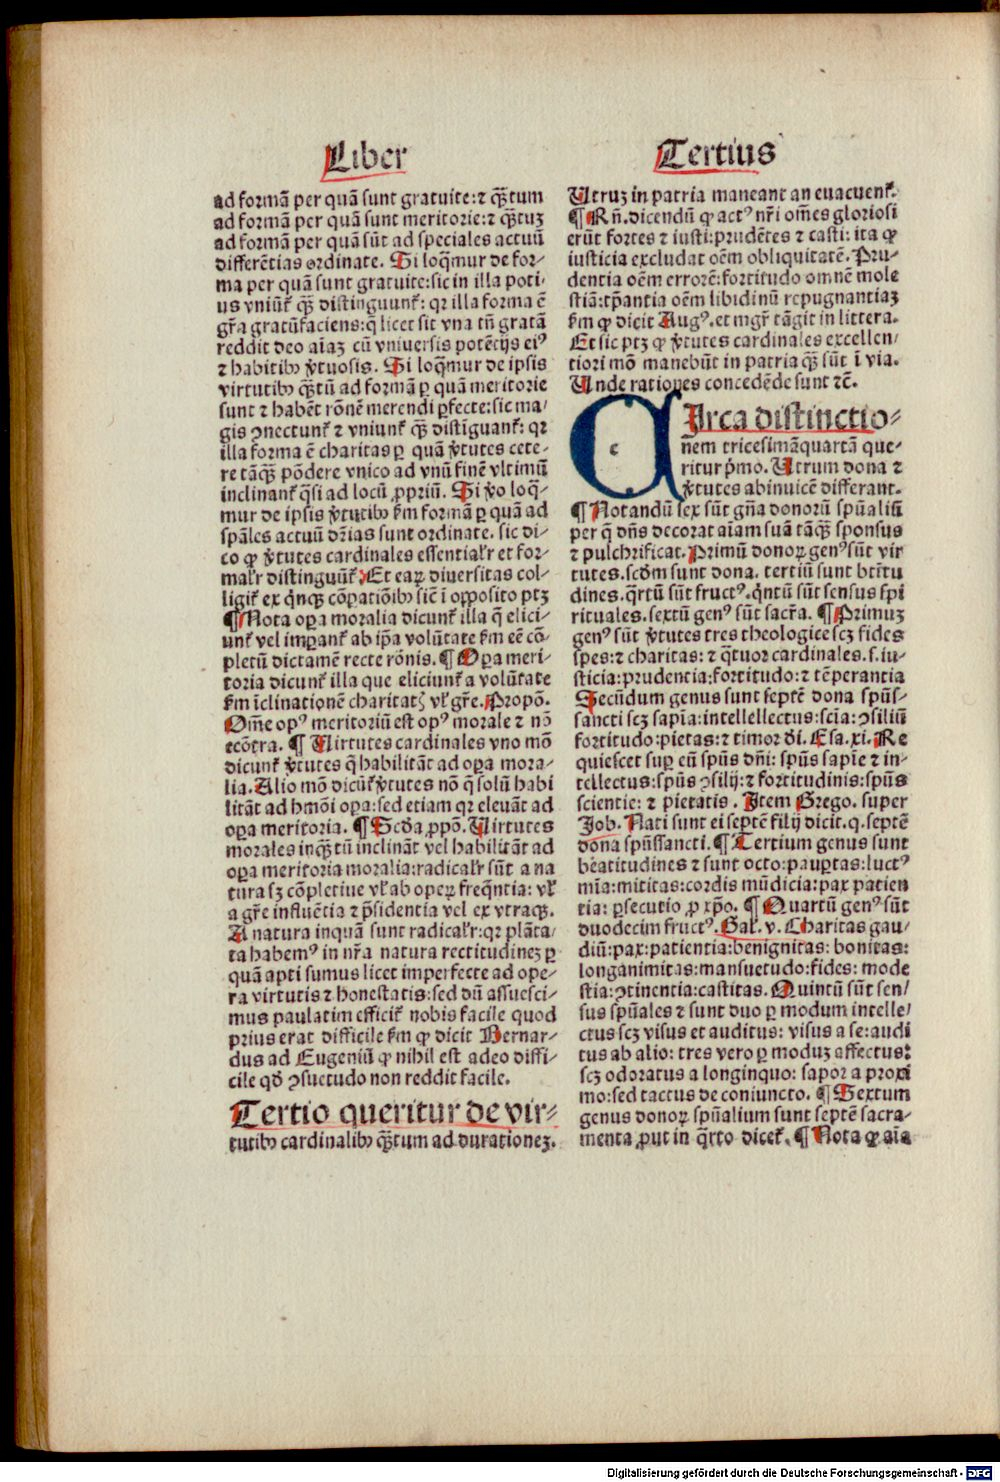 Liber
ad formā per quā sunt gratuite:⁊ qȝ̄tum
ad formā per quā sunt meritorie:⁊ qȝ̄tuȝ
ad formā per quā sūt ad speciales actuū
differētias ordinate. Si loq̄mur de for-
ma per quā sunt gratuite:sic in illa poti-
us vniūt᷑ qȝ̄ distinguunt᷑: qꝛ illa forma ē
gr̄a gratūfaciens:q̄ licet sit vna tn̄ gratā
reddit deo aīaȝ cū vniuersis potētijs eiꝰ
⁊ habitibꝫ v̓tuosis. Si loq̄mur de ipsis
virtutibꝫ qȝ̄tū ad formā ꝑ quā meritorie
sunt ⁊ habēt rōnē merendi ꝑfecte:sic ma/
gis ꝯnectunt᷑ ⁊ vniunt᷑ qȝ̄ distīguant᷑: qꝛ
illa forma ē charitas ꝑ quā v̓tutes cete-
re tāqȝ̄ pōdere vnico ad vnū finē vltimū
inclinant᷑ q̄si ad locū ꝓpriū. Si v̓o loq̄-
mur de ipsis v̓tutibꝫ ẜm formā ꝑ quā ad
spāles actuū dr̄ias sunt ordinate. sic di-
co ꝙ v̓tutes cardinales essentialr̓ et for-
malr̓ distinguūt᷑ Et eaꝝ diuersitas col-
ligit᷑ ex q̇ncꝫ cōꝑatiōibꝫ sicī i opposito ptȝ
¶ Nota oꝑa moralia dicunt᷑ illa q̄ elici-
unt᷑ vel imꝑant᷑ ab ip̄a volūtate ẜm eē cō-
pletū dictamē recte rōnis. ¶ Oꝑa meri-
toria dicunt᷑ illa que eliciunt᷑ a volūtate
ẜm īclinationē charitatꝭ vl̓ gr̄e. Propō.
Om̄e opꝰ meritoriū est opꝰ morale ⁊ nō
ecōtra. ¶ Virtutes cardinales vno mō
dicunt᷑ v̓tutes q̄ habilitāt ad oꝑa mora-
lia. Alio mō dicūt᷑ v̓tutes nō q̄ solū habi
litāt ad hmōi oꝑa:sed etiam qꝛ eleuāt ad
oꝑa meritoria. ¶ Scd̓a ꝓpō. Virtutes
morales inqȝ̄tū inclināt vel habilitāt ad
oꝑa meritoria moralia:radicalr̓ sūt a na
tura sȝ cōpletiue vl̓ ab opeꝝ freq̄ntia: vl̓
a gr̄e influētia ⁊ p̄sidentia vel ex vtraqꝫ.
A natura inquā sunt radicalr̓:qꝛ plāta/
ta habemꝰ in nr̄a natura rectitudineȝ ꝑ
quā apti sumus licet imperfecte ad ope-
ra virtutis ⁊ honestatis:sed dū assuesci-
mus paulatim efficit᷑ nobis facile quod
prius erat difficile ẜm ꝙ dicit Bernar-
dus ad Eugeniū ꝙ nihil est adeo diffi-
cile qd̓ ꝯsuetudo non reddit facile.
Tertio queritur de vir-
tutibꝫ cardinalibꝫ qȝ̄tum ad durationeȝ.
Tertius
Vtruȝ in patria maneant an euacuent᷑.
¶ Rn̄. dicendū ꝙ actꝰ nr̄i om̄es gloriosi
erūt fortes ⁊ iusti:prudētes ⁊ casti: ita ꝙ
iusticia excludat oēm obliquitatē. Pru-
dentia oēm errorē:fortitudo omnē mole
stiā:tp̄antia oēm libidinū repugnantiaȝ
ẜm ꝙ dicit Augꝰ. et mgr̄ tāgit in littera.
Et sic ptȝ ꝙ v̓tutes cardinales excellen/
tiori mō manebūt in patria qȝ̄ sūt ī via.
Vnde rationes concedēde sunt ⁊c̄.
c
Irca distinctio-
nem tricesimāquartā que-
ritur p̄mo. Vtrum dona ⁊
v̓tutes abinuicē differant.
¶ Notandū sex sūt gn̄a donorū spūaliū
per q̄ dn̄s decorat aīam suā tāqȝ̄ sponsus
⁊ pulchrificat. Primū donoꝝ genꝰ sūt vir
tutes. scd̓m sunt dona. tertiū sunt btītu
dines. q̄rtū sūt fructꝰ. q̇ntū sūt sensus spi
rituales. sextū genꝰ sūt sacr̄a. ¶ Primuȝ
genꝰ sūt v̓tutes tres theologice scȝ fides
spes:⁊ charitas: ⁊ q̄tuor cardinales. s. iu-
sticia:prudentia:fortitudo:⁊ tēperantia
Secūdum genus sunt septē dona spūs-
sancti scȝ sapīa:intellellectus:scīa: ꝯsiliū
fortitudo:pietas:⁊ timor d̓i. Esa. xi. Re
quiescet suꝑ eū spūs dn̄i: spūs sapīe ⁊ in-
tellectus:spūs ꝯsilij:⁊ fortitudinis:spūs
scientie: ⁊ pietatis. Item Grego. super
Job. Nati sunt ei septē filij dicit. q. septē
dona spūssancti. ¶ Tertium genus sunt
beatitudines ⁊ sunt octo:pauꝑtas:luctꝰ
mīa:mititas:cordis mūdicia:pax patien
tia: ꝑsecutio ꝓ xp̄o. ¶ Quartū genꝰ sūt
duodecim fructꝰ. Gal̓. v. Charitas gau/
diū:pax:patientia:benignitas: bonitas:
longanimitas:mansuetudo:fides: mode
stia:ꝯtinentia:castitas. Quintū sūt sen/
sus spūales ⁊ sunt duo ꝑ modum intelle/
ctus scȝ visus et auditus: visus a se:audi
tus ab alio: tres vero ꝑ moduȝ affectus:
scȝ odoratus a longinquo: sapor a proxi
mo:sed tactus de coniuncto. ¶ Sextum
genus donoꝝ spūalium sunt septē sacra-
menta ꝓut in q̄rto dicet᷑. ¶ Nota ꝙ aīa
Digitalisierung gefördert durch die Deutsche Forschungsgemeinschaft - DFG